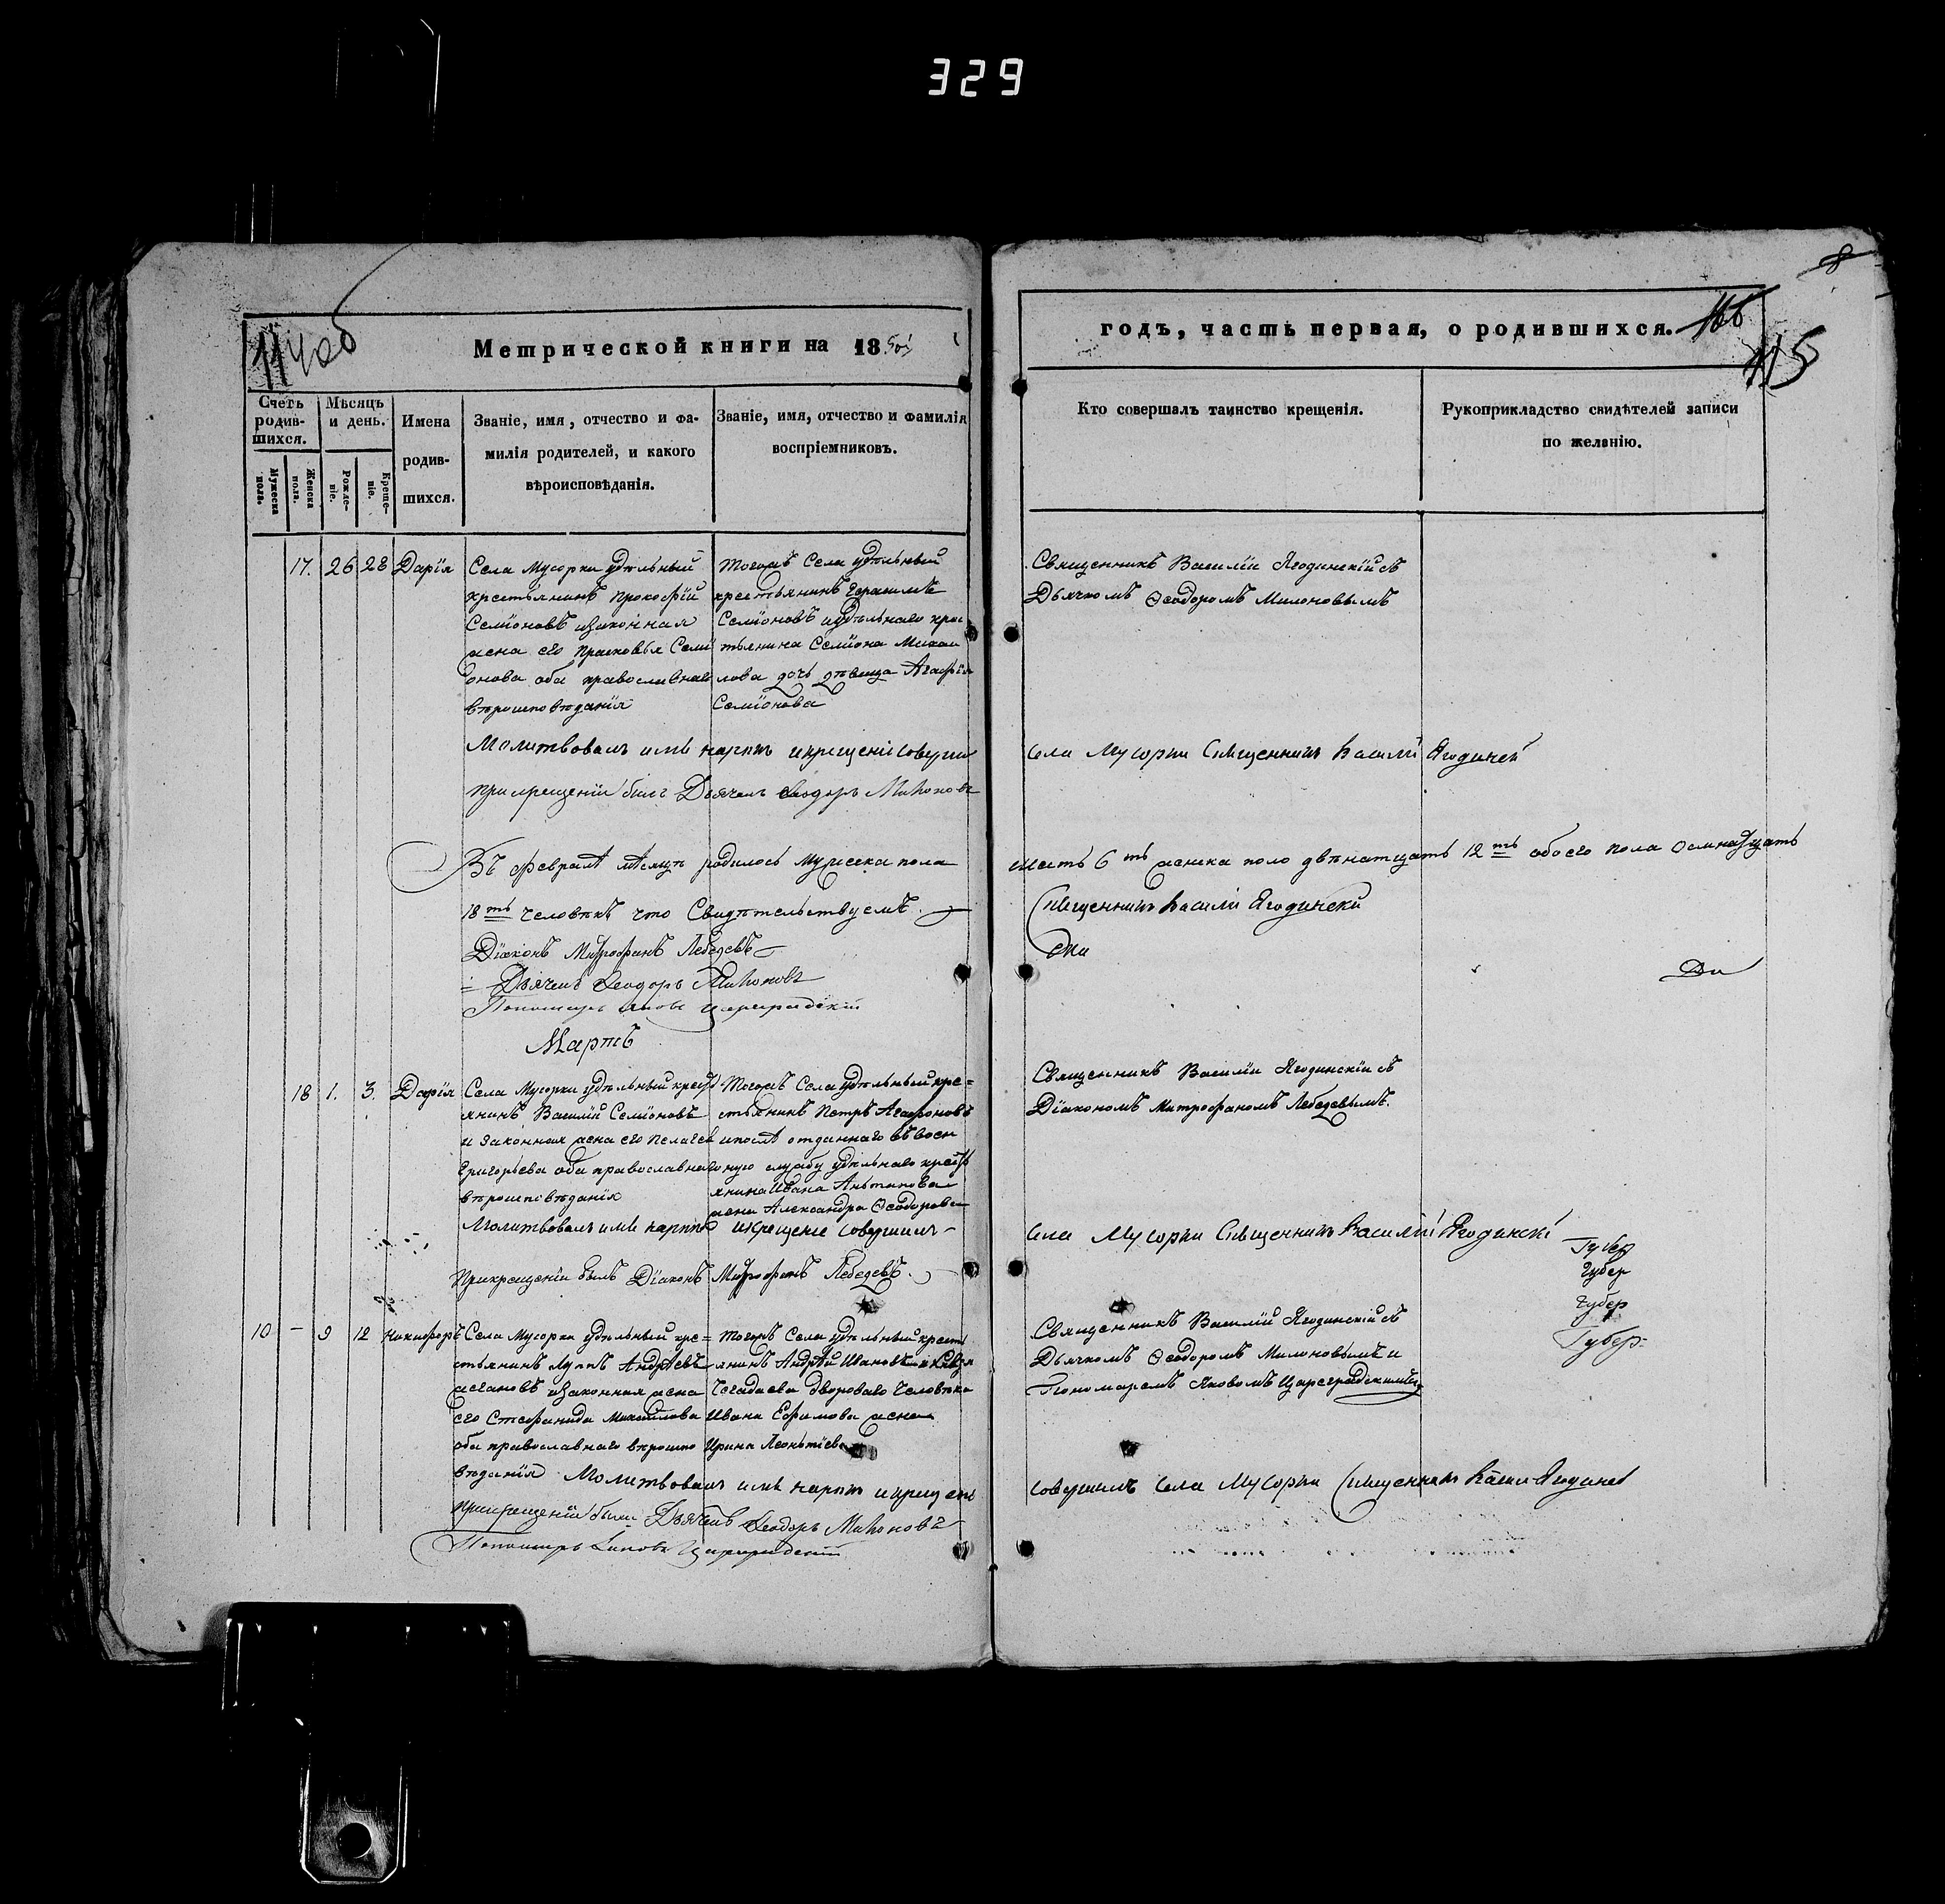 329
8
114об
Метрической книги на 18
годъ, часть первая, о родившихся. 166
115
Счетъ родив- шихся.
Мѣсяцъ и день.
Имена родив- шихся.
Званіе, имя, отчество и фа- милія родителей, и какого вѣроисповѣданія.
Званіе, имя, отчество и фамилія воспріемниковъ.
Кто совершалъ таинство крещенія.
Рукоприкладство свидѣтелей записи по желанію.
Мужеска пола.
Женска пола.
Рожде- ніе.
Креще- ніе.
17. 26 28 Дарія
Села Мусорки удѣльный
крестьянинъ Прокофій
Семіоновъ изаконная
жена его Прасковья Семи
онова оба православнаго
вѣроисповѣданія
Тогожъ Села удѣльный
крестьянинъ Герасимъ
Семіоновъ иудѣльнаго крес
тьянина Семіона Михаи
лова дочь дѣвица Агафія
Семіонова
Священникъ Василій Ягодинскій съ
Дьячкомъ Ѳеодоромъ Милоновымъ
Молитвовалъ имя нарекъ икрещеніе соверши
села Мусорки Священникъ Василій Ягодинск
При крещеніи былъ Дьячекъ Ѳеодоръ Милоновъ
Въ февралѣ мѣсяцѣ родилось мужеска пола
шесть 6ть женска поло двѣнатцать 12ть обоего пола осмнадцать
18ть человѣкъ что Свидѣтельствуемъ
Священникъ Василій Ягодински
Діаконъ Митрофанъ Лебедевъ
Дьячекъ Ѳеодоръ Милоновъ
Пономарь Яковъ Цареградскій
Мартъ
18 1. 3. Дарія
Села Мусорки удѣльный крест
янинъ Василій Семіоновъ
и законная жена его Пелагея
Григорьева оба православнаго
вѣроисповѣданія
Тогожъ Села удѣльный кре=
стьянинъ Петръ Агафоновъ
ипослѣ отданнаго въ воен
ную службу удѣльнаго крест
янина Ивана Антипова
жена Александра Ѳеодорова
Священникъ Василій Ягодинскій съ
Діакономъ Митрофаномъ Лебедевымъ.
Молитвовалъ имя нарекъ икрещеніе совершилъ
села Мусорки Священникъ Василій Ягодинскі
Прикрещеніи былъ Діаконъ Митрофанъ Лебедевъ
Губер
Губер
Губер
Губер-
10 - 9 12 Никифоръ
Села Мусорки удѣльный кре=
стьянинъ Лупъ Андреевъ
изаконная жена
его Стефанида Михайлова
оба православнаго вѣроиспо
вѣданія
Тогожъ Села удѣльный кресть
янинъ Андрей Ивановъ
дворового человѣка
Ивана Ефимова жена
Ирина Леонтіева
Священникъ Василій Ягодинскій съ
Дьячкомъ Ѳеодоромъ Милоновымъ и
Пономаремъ Яковомъ Цареградскимъ
Молитвовалъ имя нарекъ икрещені
совершилъ села Мусорки Священникъ Васили Ягодинск
прикрещеніи были Дьячекъ Ѳеодоръ Милоновъ
Пономарь Яковъ Цареградскій